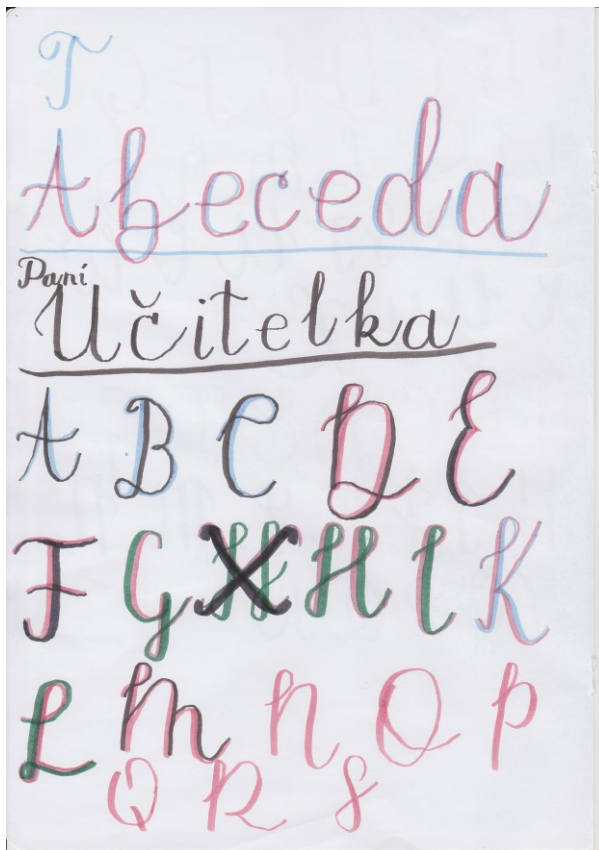 T
Abeceda
Paní
Učitelka
A B C D E
F G H I K
L M N O P
Q R S